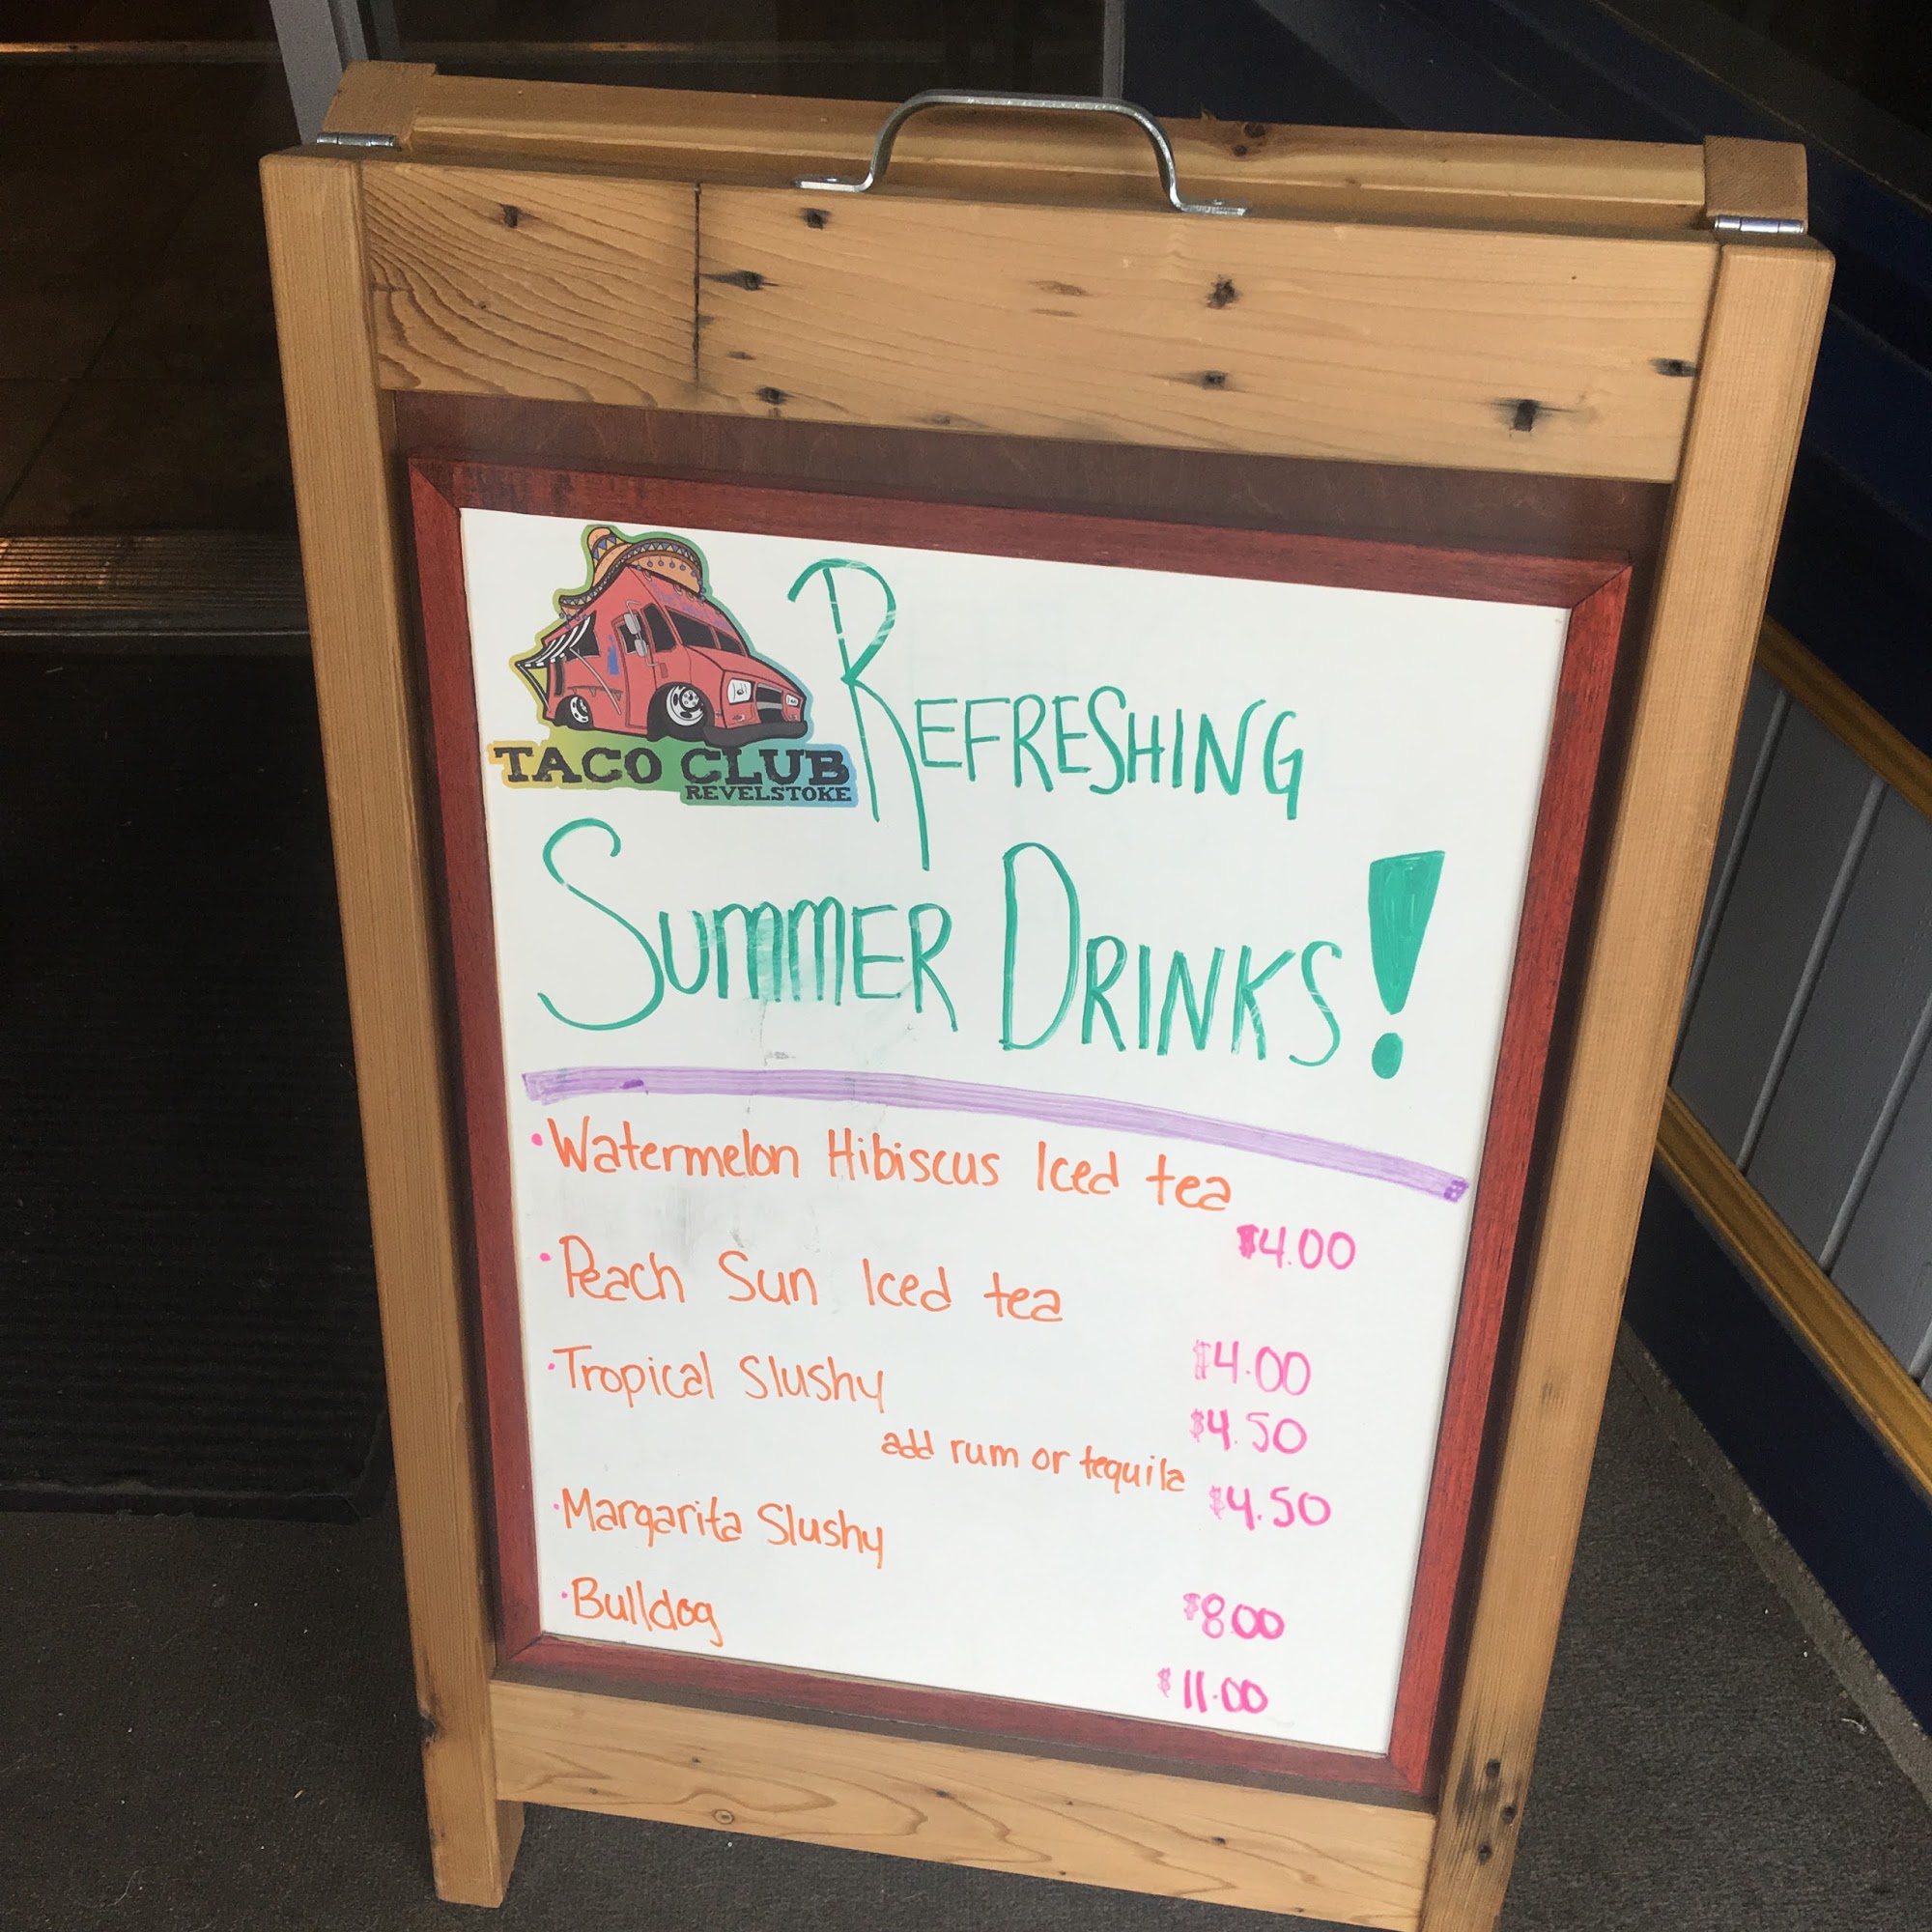 TACO CLUB
REVELSTOKE
REFRESHING
SUMMER DRINKS!
• Watermelon Hibiscus Iced tea
$4.00
• Peach Sun Iced tea
$4.00
• Tropical Slushy
$4.50
add rum or tequila
$4.50
• Margarita Slushy
$8.00
• Bulldog
$11.00